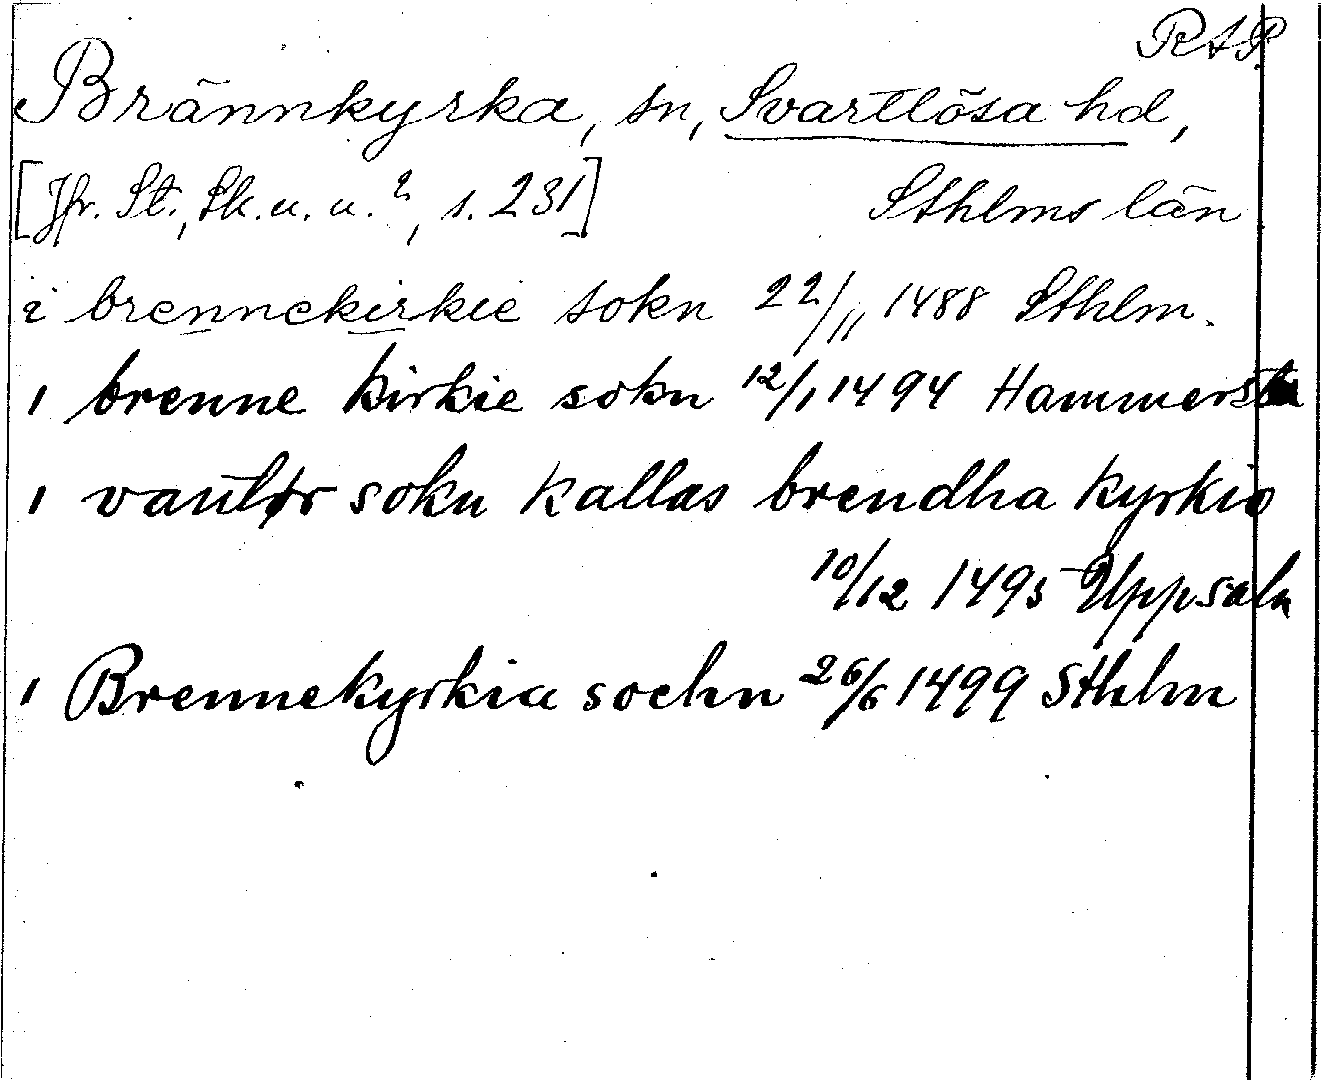 RAP.
Brännkyrka, sn, Svartlösa hd,
[Jfr. St., Sk. u. u.², s. 231] Sthlms län
i brennekirkie sokn 22/11 1488 Sthlm.
i brenne kirkie sokn 12/1 1494 Hammersta
i vantør sokn kallas brendha kyrkio
10/12 1495 Uppsala
i Brennekyrkia sochn 26/6 1499 Sthlm